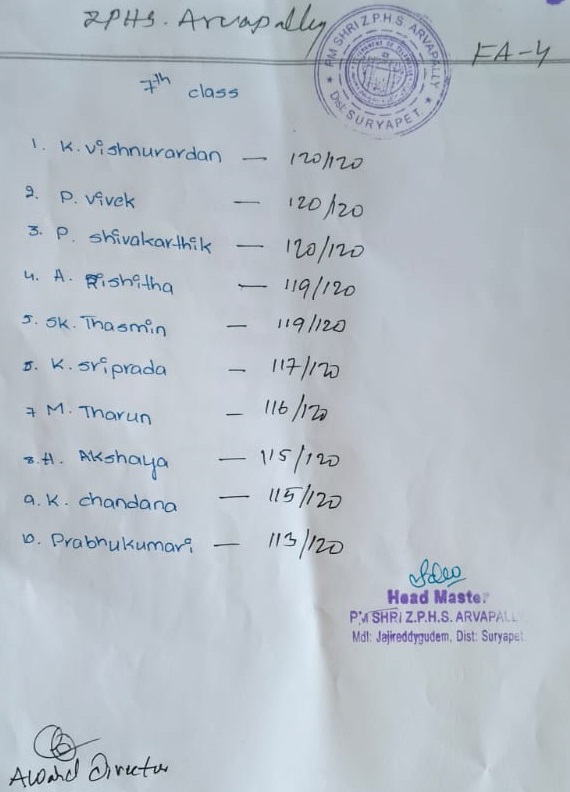 ZPHS. Arvapally
PM SHRI Z.P.H.S. ARVAPALLY
Dist. SURYAPET.
FA-4
7th class
1. K. Vishnuvardan — 120/120
2. P. Vivek — 120/120
3. P. Shivakarthik — 120/120
4. A. Rishitha — 119/120
5. SK. Thasmin — 119/120
6. K. Sriprada — 117/120
7 M. Tharun — 116/120
8. H. Akshaya — 115/120
9. K. Chandana — 115/120
10. Prabhukumari — 113/120
Head Master
PM SHRI Z.P.H.S. ARVAPALLY
Mdl: Jajireddygudem, Dist: Suryapet
Award Director